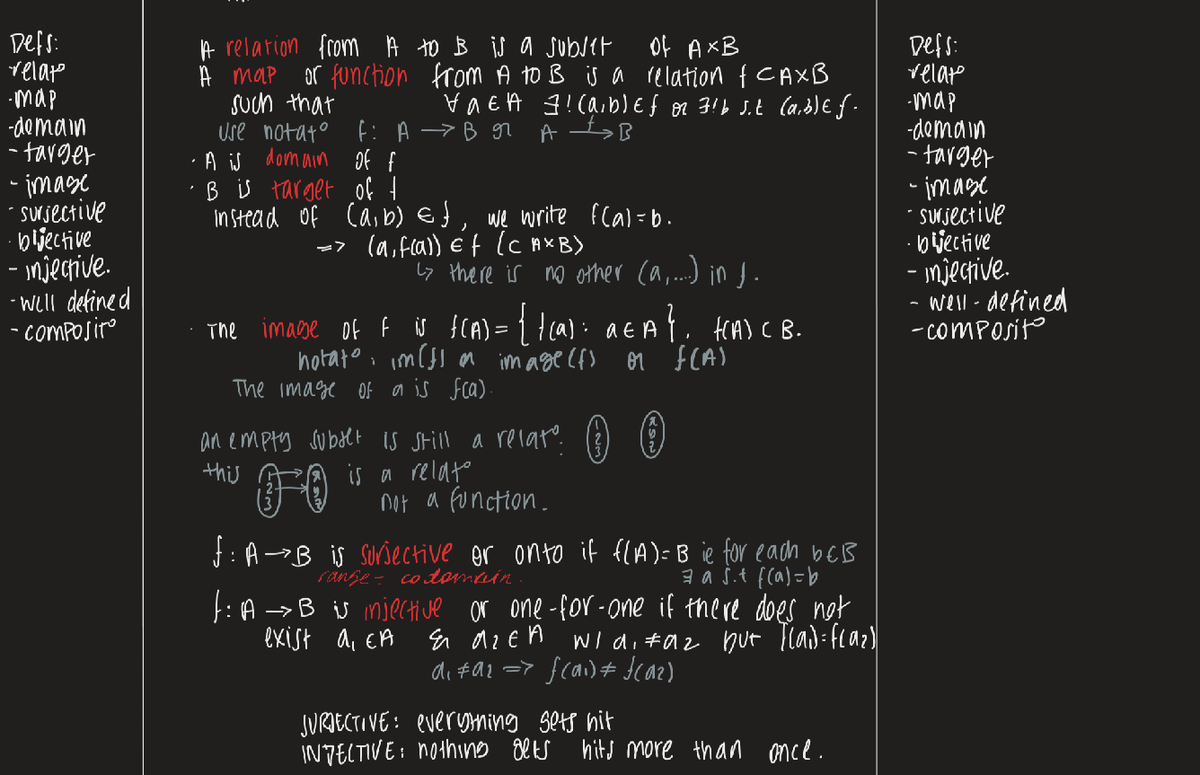 Defs:
relatº
-map
-domain
- target
- image
- surjective
- bijective
- injective.
- well defined
- compositº
A relation from A to B is a subset of A×B
A map or function from A to B is a relation f ⊂ A×B
such that ∀a∈A ∃!(a,b)∈f or ∃!b s.t (a,b)∈f.
use notatº f: A → B or A →f B
· A is domain of f
· B is target of f
instead of (a,b) ∈ f, we write f(a)=b.
=> (a,f(a)) ∈ f (⊂ A×B)
↳ there is no other (a,...) in f.
· The image of f is f(A) = { f(a) : a∈A }, f(A) ⊂ B.
notatº: im(f) or image(f) or f(A)
The image of a is f(a).
an empty subset is still a relatº. 1 2 3 x y z
this 1 2 3 x y z is a relatº
not a function.
f: A→B is surjective or onto if f(A)=B ie for each b∈B
range = codomain. ∃ a s.t f(a)=b
f: A → B is injective or one-for-one if there does not
exist a₁ ∈A & a₂∈A w/ a₁≠a₂ but f(a₁)=f(a₂)
a₁≠a₂ => f(a₁)≠f(a₂)
SURJECTIVE: everything gets hit
INJECTIVE: nothing gets hits more than once.
Defs:
relatº
-map
-domain
- target
- image
- surjective
- bijective
- injective.
- well-defined
-compositº